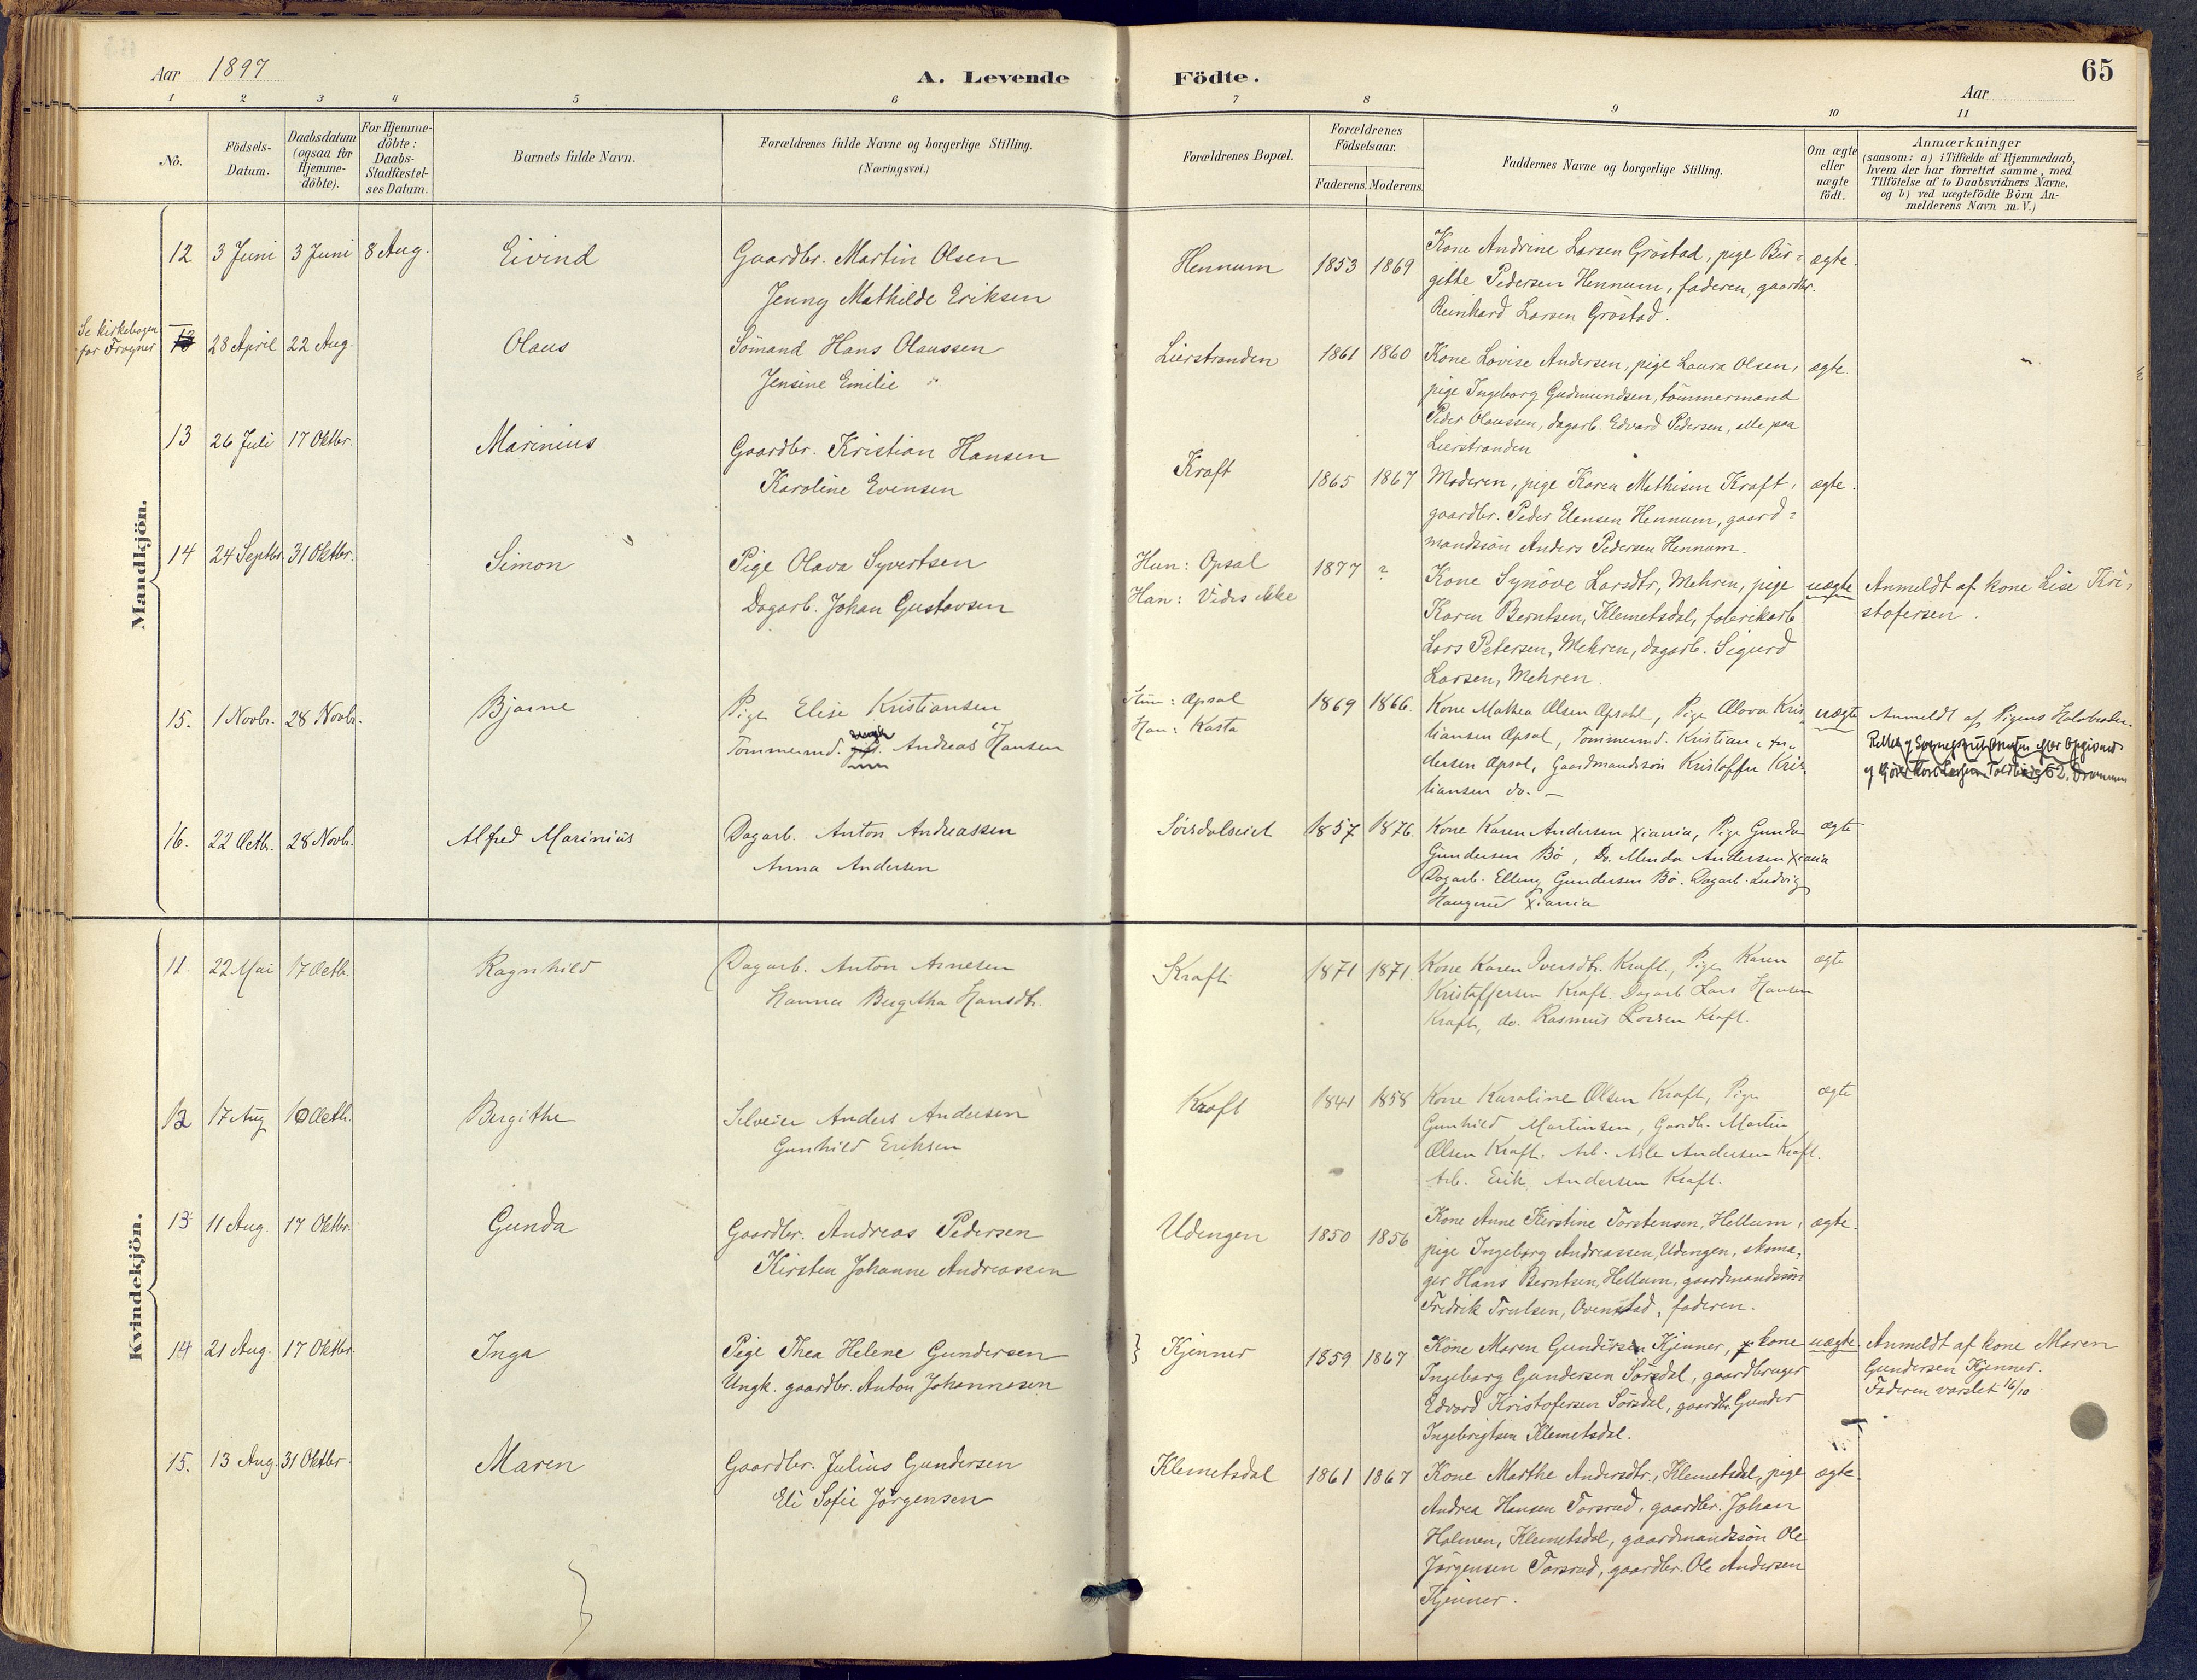 Aar 1897
A. Levende
Födte.
Aar
65
1 2 3 4 5 6 7 8 9 10 11
No.
Födsels-
Datum.
Daabsdatum
(ogsaa for
Hjemme-
döbte).
For Hjemme-
döbte:
Daabs-
Stadfæstel-
ses Datum.
Barnets fulde Navn.
Forældrenes fulde Navne og borgerlige Stilling.
(Næringsvei.)
Forældrenes Bopæl.
Forældrenes
Födselsaar.
Faderens. Moderens.
Faddernes Navne og borgerlige Stilling.
Om ægte
eller
uægte
födt.
Anmærkninger
(saasom: a) i Tilfælde af Hjemmedaab,
hvem der har forrettet samme, med
Tilföielse af to Daabsvidners Navne.
og b) ved uægtefödte Börn An-
melderens Navn m. V.)
Mandkjön.
12 3 Juni 3 Juni 8 Aug. Eivind
Gaardbr. Martin Olsen
Jenny Mathilde Eriksen
Hennum 1853 1869
Kone Andrine Larsen Gröstad, pige Bir-
gitte Pedersen Hennum, faderen, gaardbr.
Reinhard Larsen Gröstad.
ægte.
Se kirkebogen
for Frogner
28 April 22 Aug. Olaus
Sömand Hans Olaussen
Jensine Emilie
Lierstranden 1861 1860
Kone Lovise Andersen, pige Laura Olsen,
pige Ingeborg Gudmundsen, tömmermand
Peder Olaussen, dagarb. Edvard Pedersen, alle paa
Lierstranden
ægte.
13 26 Juli 17 Oktbr. Marinius
Gaardbr. Kristian Hansen
Karoline Evensen
Kraft 1865 1867
Moderen, pige Karen Mathisen Kraft,
gaardbr. Peder Elensen Hennum, gaard-
mandssön Anders Pedersen Hennum.
ægte.
14 24 Septbr. 31 Oktbr. Simon
Pige Olava Syvertsen
Dagarb. Johan Gustavsen
Hun: Opsal
Han: Vides ikke
1877 ?
Kone Synöve Larsdtr, Mehren, pige
Karen Berntsen, Klemetsdal, fabrikarb
Lars Petersen, Mehren, dagarb. Sigurd
Larsen, Mehren.
uægte
Anmeldt af kone Lise Kri-
stofersen.
15. 1 Novbr. 28 Novbr. Bjarne
Pige Elise Kristiansen
Tömmermd. Andreas Hansen
Hun: Opsal
Han: Kasta
1869 1866.
Kone Mathea Olsen Opsahl, Pige Olava Kris
tiansen Opsal, Tömmermd. Kristian An-
dersen Opsal, Gaardmandssön Kristoffer Kris-
tiansen do. —
uægte
Anmeldt af Pigens Halvbroder.
16. 22 Octb. 28 Novb. Alfred Marinius
Dagarb. Anton Andreassen
Anna Andersen
Sörsdalseiet 1857 1876.
Kone Karen Andersen Xiania, Pige Gunda
Gundersen Bö, Do. Menda Andersen Xiania
Dagarb. Elling Gundersen Bö. Dagarb. Ludvig
Haugerud Xiania
ægte
Kvindekjön.
11. 22 Mai 17 Octb. Ragnhild
Dagarb. Anton Arnesen
Hanna Bergitha Hansdtr.
Kraft 1871 1871
Kone Karen Iversdtr. Kraft, Pige Karen
Kristoffersen Kraft. Dagarb Lars Hansen
Kraft, do. Rasmus Larsen Kraft.
ægte
12 17 Aug 10 Octb. Bergithe
Selveier Anders Andersen
Gunhild Eriksen
Kraft 1841 1858
Kone Karoline Olsen Kraft, Pige
Gunhild Martinsen, Gaardb. Martin
Olsen Kraft. Arb. Asle Andersen Kraft.
Arb. Erik Andersen Kraft.
ægte
13 11 Aug. 17 Oktbr. Gunda
Gaardbr. Andreas Pedersen
Kirsten Johanne Andreassen
Udengen 1850 1856
Kone Anne Kirstine Torstensen, Hellum,
pige Ingeborg Andreassen, Udengen, skoma-
ger Hans Berntsen, Hellum, gaardmandssön
Fredrik Trulsen, Ovenstad, faderen.
ægte.
14 21 Aug. 17 Oktbr. Inga
Pige Thea Helene Gundersen
Ungk. gaardbr. Anton Johannesen
Kjenner 1859 1867
Kone Maren Gundersen Kjenner, kone
Ingeborg Gundersen Sörsdal, gaardbruger
Edvard Kristofersen Sörsdal, gaardbr. Gunder
Ingebrigtsen Klemetsdal.
uægte.
Anmeldt af kone Maren
Gundersen Kjenner.
Faderen varslet 16/10
15. 13 Aug. 31 Oktbr. Maren
Gaardbr. Julius Gundersen
Eli Sofie Jörgensen
Klemetsdal 1861 1867
Kone Marthe Andersdtr., Klemetsdal, pige
Andrea Hansen Torsrud, gaardbr. Johan
Holmen, Klemetsdal, gaardmandssön Ole
Jörgensen Torsrud, gaardbr. Ole Andersen
Kjenner.
ægte.